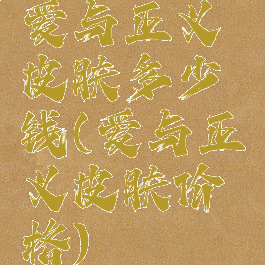 爱与正义
皮肤多少
钱(爱与正
义皮肤价
格)